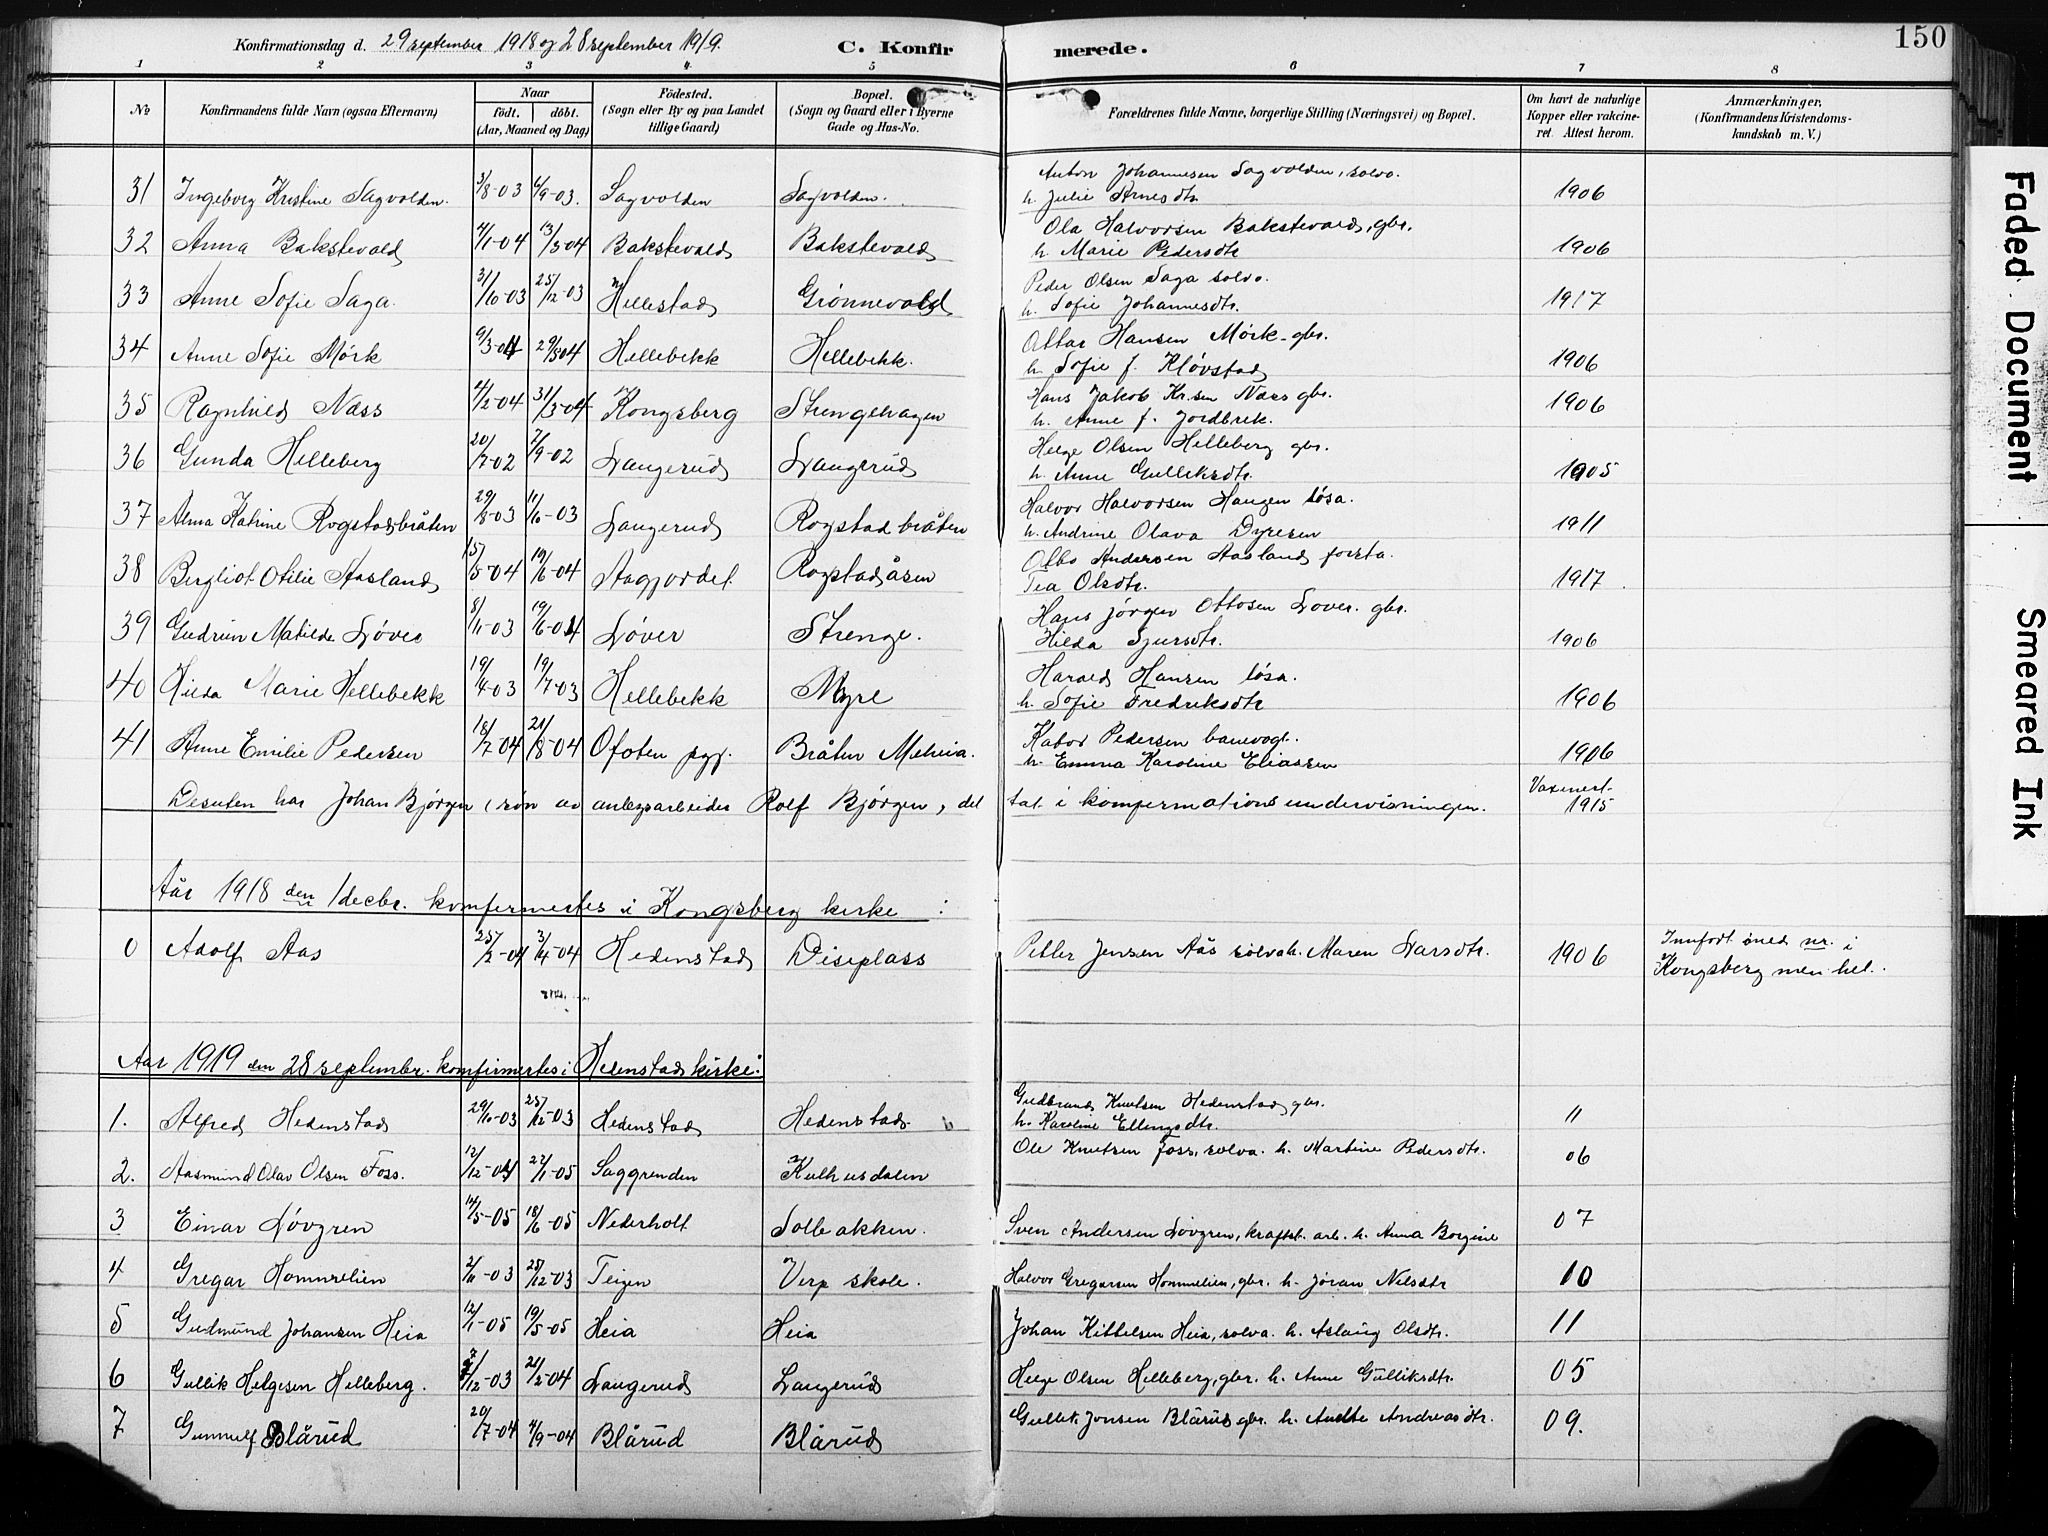 Konfirmationsdag d. 29 september 1918 og 28 september 1919. C. Konfirmerede. 150
1 2 3 4 5 6 7 8
No Konfirmandens fulde Navn (ogsaa Efternavn) Naar født. døbt. (Aar, Maaned og Dag) Fødested. (Sogn eller By og paa Landet tillige Gaard) Bopæl. (Sogn og Gaard eller i Byerne Gade og Hus-No. Forældrenes fulde Navne, borgerlige Stilling (Næringsvei) og Bopæl. Om havt de naturlige Kopper eller vakcineret. Attest herom. Anmærkninger. (Konfirmandens Kristendomskundskab m. V.)
31 Ingeborg Kristine Sagvolden. 3/8-03 6/9-03. Sagvolden Sagvolden. Anton Johannesen Sagvolden, selve. h. Julie Arnesdtr. 1906
32 Anna Bakstevald 4/1-04 13/3-04 Bakstevald Bakstevald Ola Halvorsen Bakstevald, gbr. h. Marie Pedersdtr 1906
33 Anne Sofie Saga. 31/10-03 25/12-03 Hellestad Grønnevold Peder Olsen Saga selve. h. Sofie Johannesdtr. 1917
34 Anne Sofie Mørk 9/3-04 29/5 04 Hellebekk Hellebekk. Ottar Hansen Mørk gbr. h. Sofie f. Kløvstad 1906
35 Ragnhild Næss 4/2-04 31/3-04 Kongsberg Strengehagen Hans Jakob Kr.sen Næss gbr. h. Anne f. Jordbrek. 1906
36 Gunda Helleberg 20/7-02 7/9-02 Langerud Langerud Helge Olsen Helleberg gbr. h. Anne Gulliksdtr. 1905
37 Alma Katrine Rogstadbråten 29/8-03 11/10-03 Langerud Rogstadbråten Halvor Halvorsen Haugen løsa. h. Andrine Olava Dyresen 1911
38 Bergliot Otilie Aasland 15/5-04 19/6-04 Aagjordet Rogstadåsen Otto Andersen Aasland forsta. Tea Olsdtr. 1917
39 Gudrun Matilde Løver 8/11-03 19/6-04 Løver Strenge. Hans Jørgen Ottosen Lover. gbr. Hilda Sjursdtr. 1906
40 Hilda Marie Hellebekk 19/4-03 19/7-03 Hellebekk Myre Harald Hansen løsa. h. Sofie Fredriksdtr 1906
41 Anne Emilie Pedersen 18/7-04 21/8-04 Ofoten pgj. Bråten Meheia. Kador Pedersen banevogt. h. Emma Karoline Eliassen 1906
Desuten har Johan Bjørgen (søn av anlegsarbeider Rolf Bjørgen, deltat i konfermationsundervisningen. Vaxinert 1915
Aar 1918 den 1 decbr. konfermertes i Kongsberg kirke:
0 Adolf Aas 25/2-04 3/4-04 Hedenstad Diseplass Petter Jensen Aås selve h. Maren Larsdtr. 1906 Innført uned nr. i Kongsberg men. hel.
Aar 1919 den 28 septembr. konfirmertes i Hedenstad kirke:
1. Alfred Hedenstad 29/10-03 25/12-03 Hedenstad Hedenstad Gudbrand Knutsen Hedenstad gbr. h. Karoline Ellingsdtr. 11
2. Aasmund Olav Olsen Foss. 12/12-04 22/1-05 Saggrenden Kulhusdalen Ole Knutsen Foss, selve. h. Martine Pedersdtr. 06
3 Einar Løvgren 14/5-05 18/6-05 Nederholt Solbakken. Sven Andersen Løvgren, kraftst. arb. h. Anna Borgine 07
4 Gregar Hommelien 2/11-03 25/12-03 Teigen Verp skole. Halvor Gregarsen Hommelien, gbr. h. Jøran Nilsdtr 10
5 Gudmund Johansen Heia 12/1-05 19/5-05 Heia Heia Johan Kittelsen Heia, selve. h. Aslaug Olsdtr. 11
6 Gullik Helgesen Helleberg. 7/12-03 21/2-04 Langerud Langerud Helge Olsen Helleberg, gbr. h. Anne Gulliksdtr. 05
7 Gunnulf Blårud 20/7-04 4/9-04 Blårud Blårud Gullik Jonsen Blårud gbr. h. Andreasdtr. 09.
Faded Document
Smeared Ink